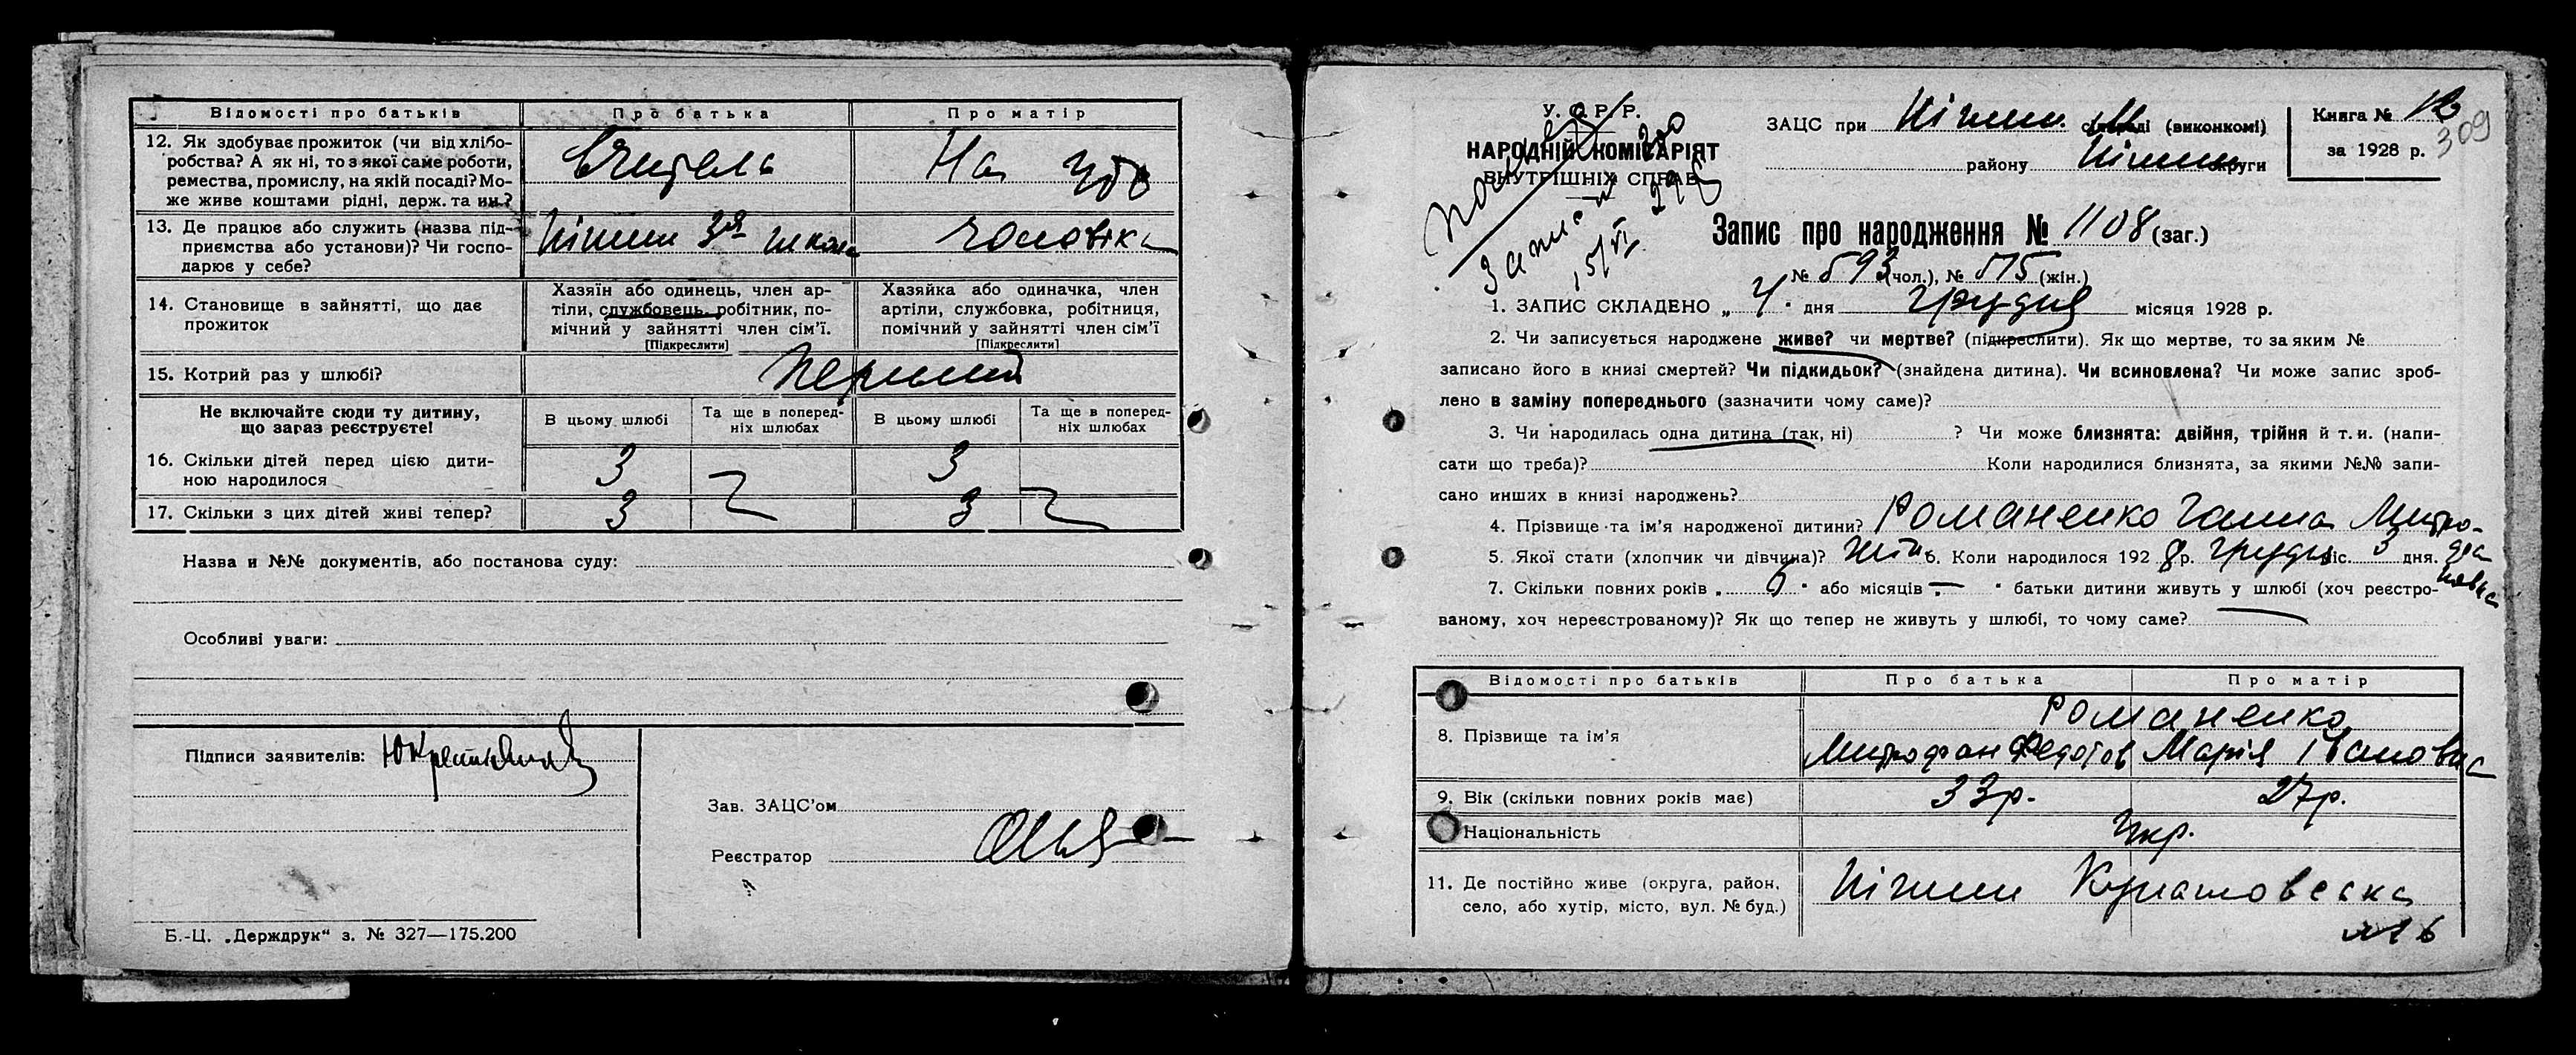 Відомості про батьків
Про батька
Про матір
12. Як здобуває прожиток (чи від хлібо-
робства? А як ні, то з якої саме роботи,
ремества, промислу, на якій посаді? Мо-
же живе коштами рідні, держ. та ин.?
Вчитель
На утр
13. Де працює або служить (назва під-
приємства або установи)? Чи госпо-
дарює у себе?
Ніжин 3я школа
чоловіка
14. Становище в зайнятті, що дає
прожиток
Хазяїн або одинець, член ар-
тіли, службовець, робітник, по-
мічний у зайнятті член сім'ї.
[Підкреслити]
Хазяйка або одиначка, член
артіли, службовка, робітниця,
помічний у зайнятті член сім'ї
[Підкреслити]
15. Котрий раз у шлюбі?
Перший
Не включайте сюди ту дитину,
що зараз реєструєте!
В цьому шлюбі
Та ще в поперед-
ніх шлюбах
В цьому шлюбі
Та ще в поперед-
ніх шлюбах
16. Скільки дітей перед цією дити-
ною народилося
3
3
17. Скільки з цих дітей живі тепер?
3
3
Назва и №№ документів, або постанова суду:
Особливі уваги:
Підписи заявителів:
Зав. ЗАЦС'ом
Реєстратор
Б.-Ц. „Держдрук“ з. № 327—175.200
У. С. Р. Р.
НАРОДНІЙ КОМІСАРІЯТ
ВНУТРІШНІХ СПРАВ
ЗАЦС при Ніжин. М сільраді (виконкомі)
району Ніжин округи
Книга № 12
за 1928 р.
309
Запис про народження № 1108 (заг.)
№ 593 (чол.), № 515 (жін.)
1. ЗАПИС СКЛАДЕНО „ 4 “ дня грудня місяця 1928 р.
2. Чи записується народжене живе? чи мертве? (підкреслити). Як що мертве, то за яким №
записано його в книзі смертей? Чи підкидьок? (знайдена дитина). Чи всиновлена? Чи може запис зроб-
лено в заміну попереднього (зазначити чому саме)?
3. Чи народилась одна дитина (так, ні) ? Чи може близнята: двійня, трійня й т. и. (напи-
сати що треба)? Коли народилися близнята, за якими №№ запи-
сано инших в книзі народжень?
4. Прізвище та ім'я народженої дитини? Романенко Галина Митро-
5. Якої стати (хлопчик чи дівчина)? жін 6. Коли народилося 192 8 р. грудн міс. 3 дня. фа
нівна
7. Скільки повних років „ 6 “ або місяців „ — “ батьки дитини живуть у шлюбі (хоч реєстро-
ваному, хоч нереєстрованому)? Як що тепер не живуть у шлюбі, то чому саме?
Відомості про батьків
Про батька
Про матір
8. Прізвище та ім'я
Романенко
Митрофан Федотов
Марія Івановна
9. Вік (скільки повних років має)
33р.
27р.
Національність
Укр.
11. Де постійно живе (округа, район,
село, або хутір, місто, вул. № буд.)
Ніжин Купашовська
№ 6